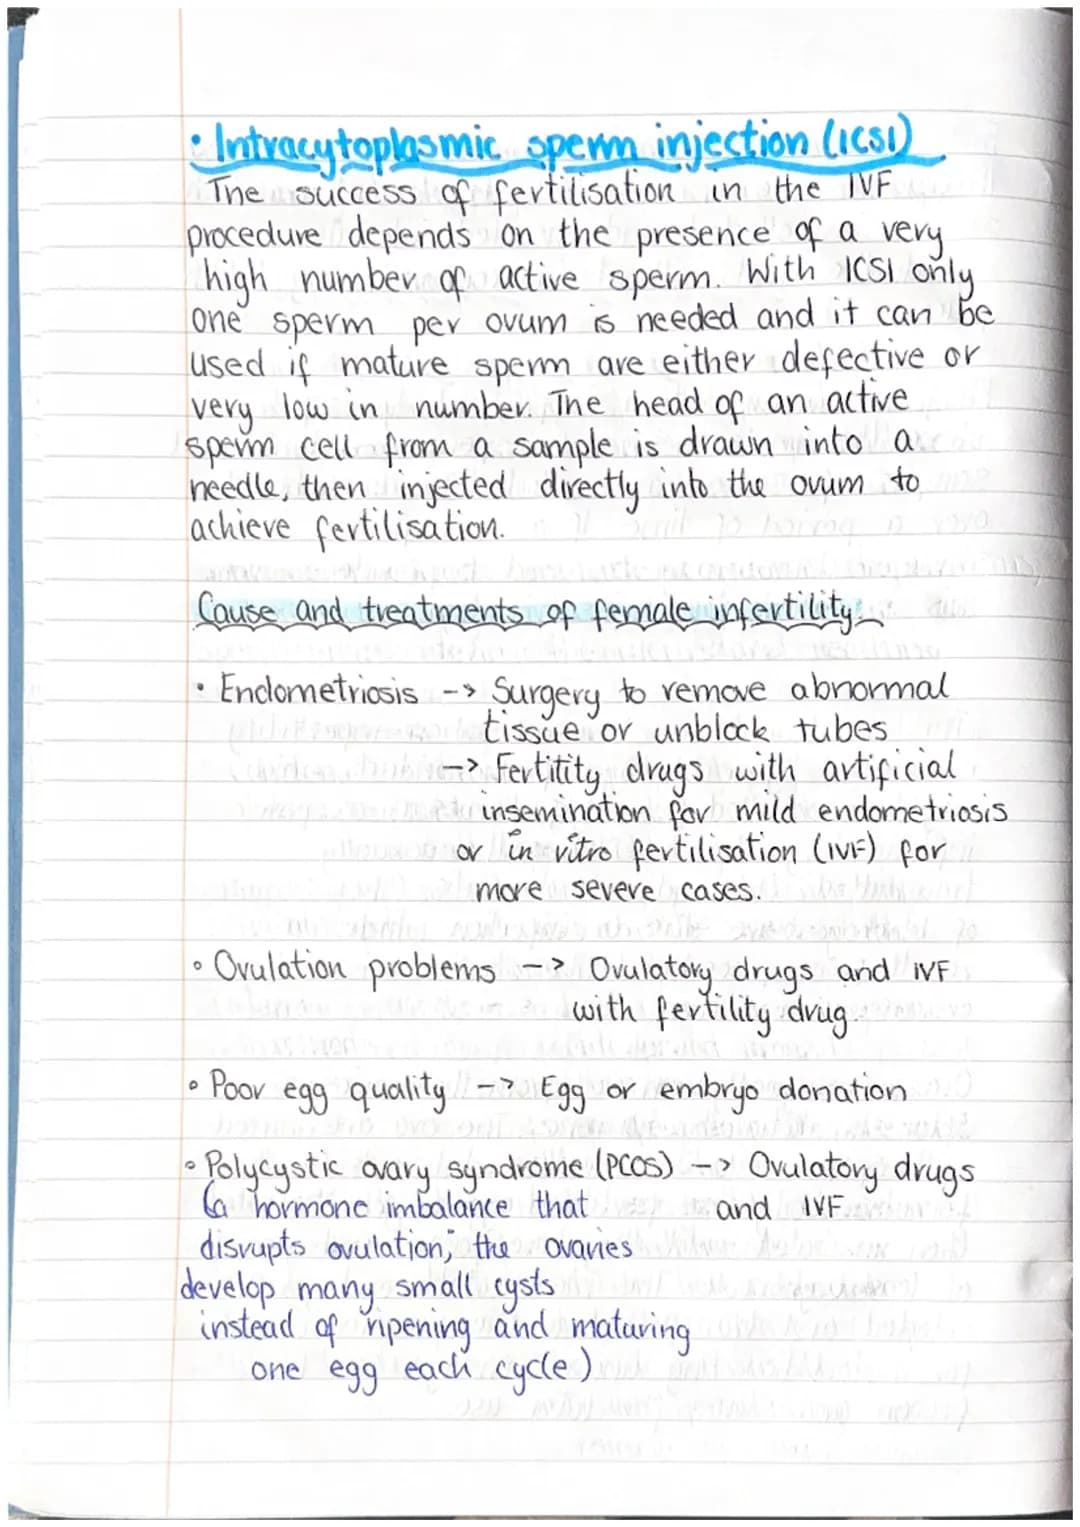 • Intracytoplasmic sperm injection (ICSI)
The success of fertilisation in the IVF
procedure depends on the presence of a very
high number of active sperm. With ICSI only
one sperm per ovum is needed and it can be
used if mature sperm are either defective or
very low in number. The head of an active
sperm cell from a sample is drawn into a
needle, then injected directly into the ovum to
achieve fertilisation.
Cause and treatments of female infertility:
• Endometriosis --> Surgery to remove abnormal
tissue or unblock tubes
--> Fertitity drugs with artificial
insemination for mild endometriosis
or in vitro fertilisation (IVF) for
more severe cases.
• Ovulation problems --> Ovulatory drugs and IVF
with fertility drug.
• Poor egg quality --> Egg or embryo donation
• Polycystic ovary syndrome (PCOS) --> Ovulatory drugs
(a hormone imbalance that and IVF.
disrupts ovulation; the ovaries
develop many small cysts
instead of ripening and maturing
one egg each cycle)